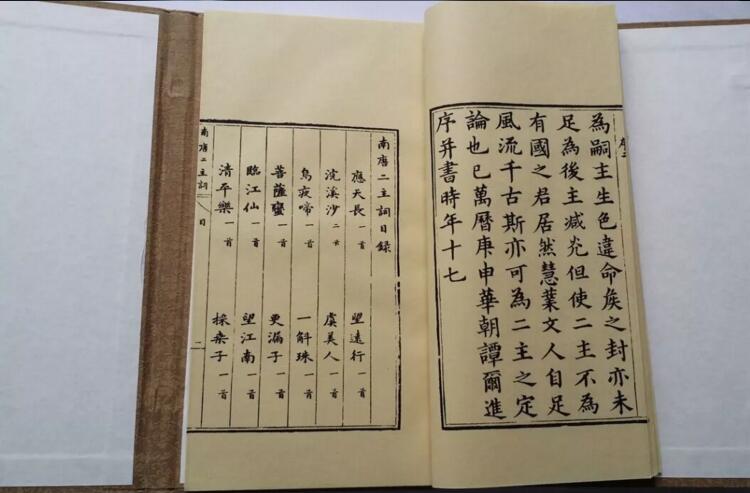 序二
為嗣主生色違命矦之封亦未
足為後主減光但使二主不為
有國之君居然慧業文人自足
風流千古斯亦可為二主之定
論也已萬曆庚申華朝譚爾進
序并書時年十七
南唐二主詞目錄
應天長 一首 望遠行 一首
浣溪沙 二首 虞美人 一首
烏夜啼 一首 一斛珠 一首
菩薩蠻 一首 更漏子 一首
臨江仙 一首 望江南 一首
清平樂 一首 採桑子 一首
南唐二主詞 目